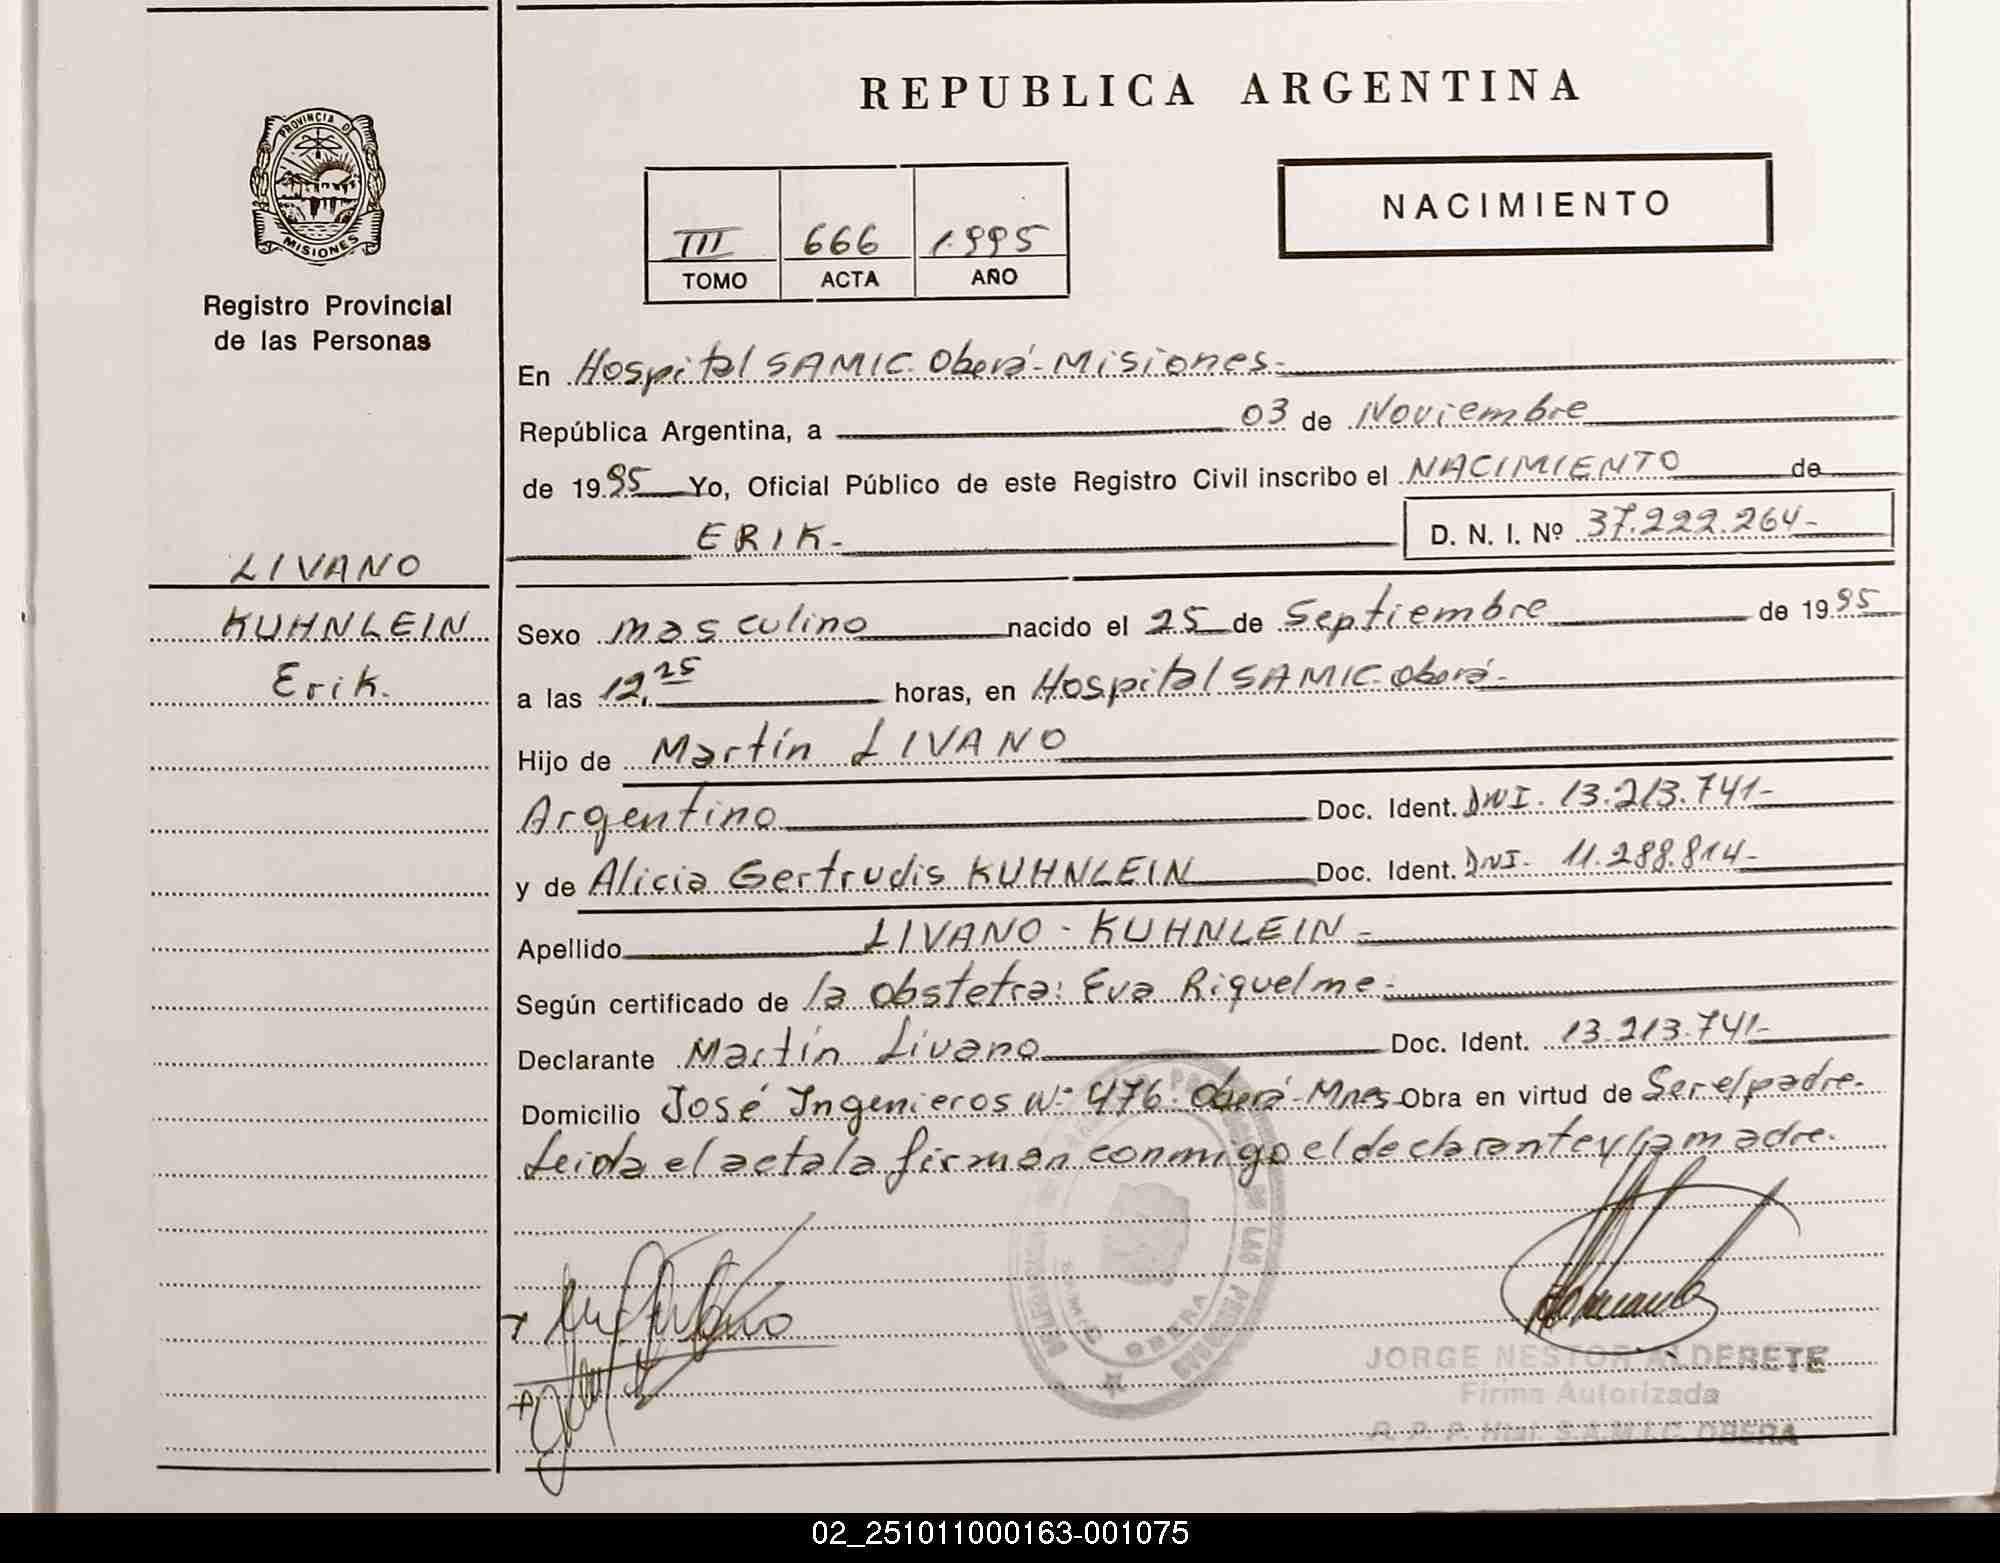 REPUBLICA ARGENTINA
PROVINCIA DE
MISIONES
Registro Provincial
de las Personas
III 666 1995
TOMO ACTA AÑO
NACIMIENTO
En Hospital SAMIC. Oberá - Misiones.-
República Argentina, a 03 de Noviembre
de 1995 Yo, Oficial Público de este Registro Civil inscribo el NACIMIENTO de
ERIK.- D. N. I. Nº 37.222.264-
LIVANO
KUHNLEIN
Erik.
Sexo masculino nacido el 25 de Septiembre de 1995
a las 12.25 horas, en Hospital SAMIC. oberá-
Hijo de Martín LIVANO
Argentino Doc. Ident. DNI. 13.213.741-
y de Alicia Gertrudis KUHNLEIN Doc. Ident. DNI. 11.288.814-
Apellido LIVANO - KUHNLEIN -
Según certificado de la obstetra: Eva Riquelme -
Declarante Martín Livano Doc. Ident. 13.213.741-
Domicilio José Ingenieros Nº 476. Oberá - Mnes Obra en virtud de Ser el padre.
Leida el acta la firman conmigo el declarante y la madre.
DE LAS PERSONAS
OBERA
JORGE NESTOR ALDERETE
Firma Autorizada
R. P. P. Htal. S.A.M.I.C. OBERA
02_251011000163-001075